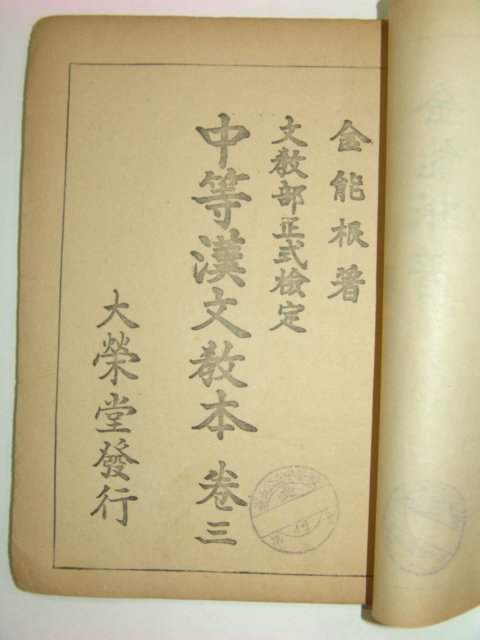 金能根著
文敎部正式檢定
中等漢文敎本 卷三
大榮堂發行